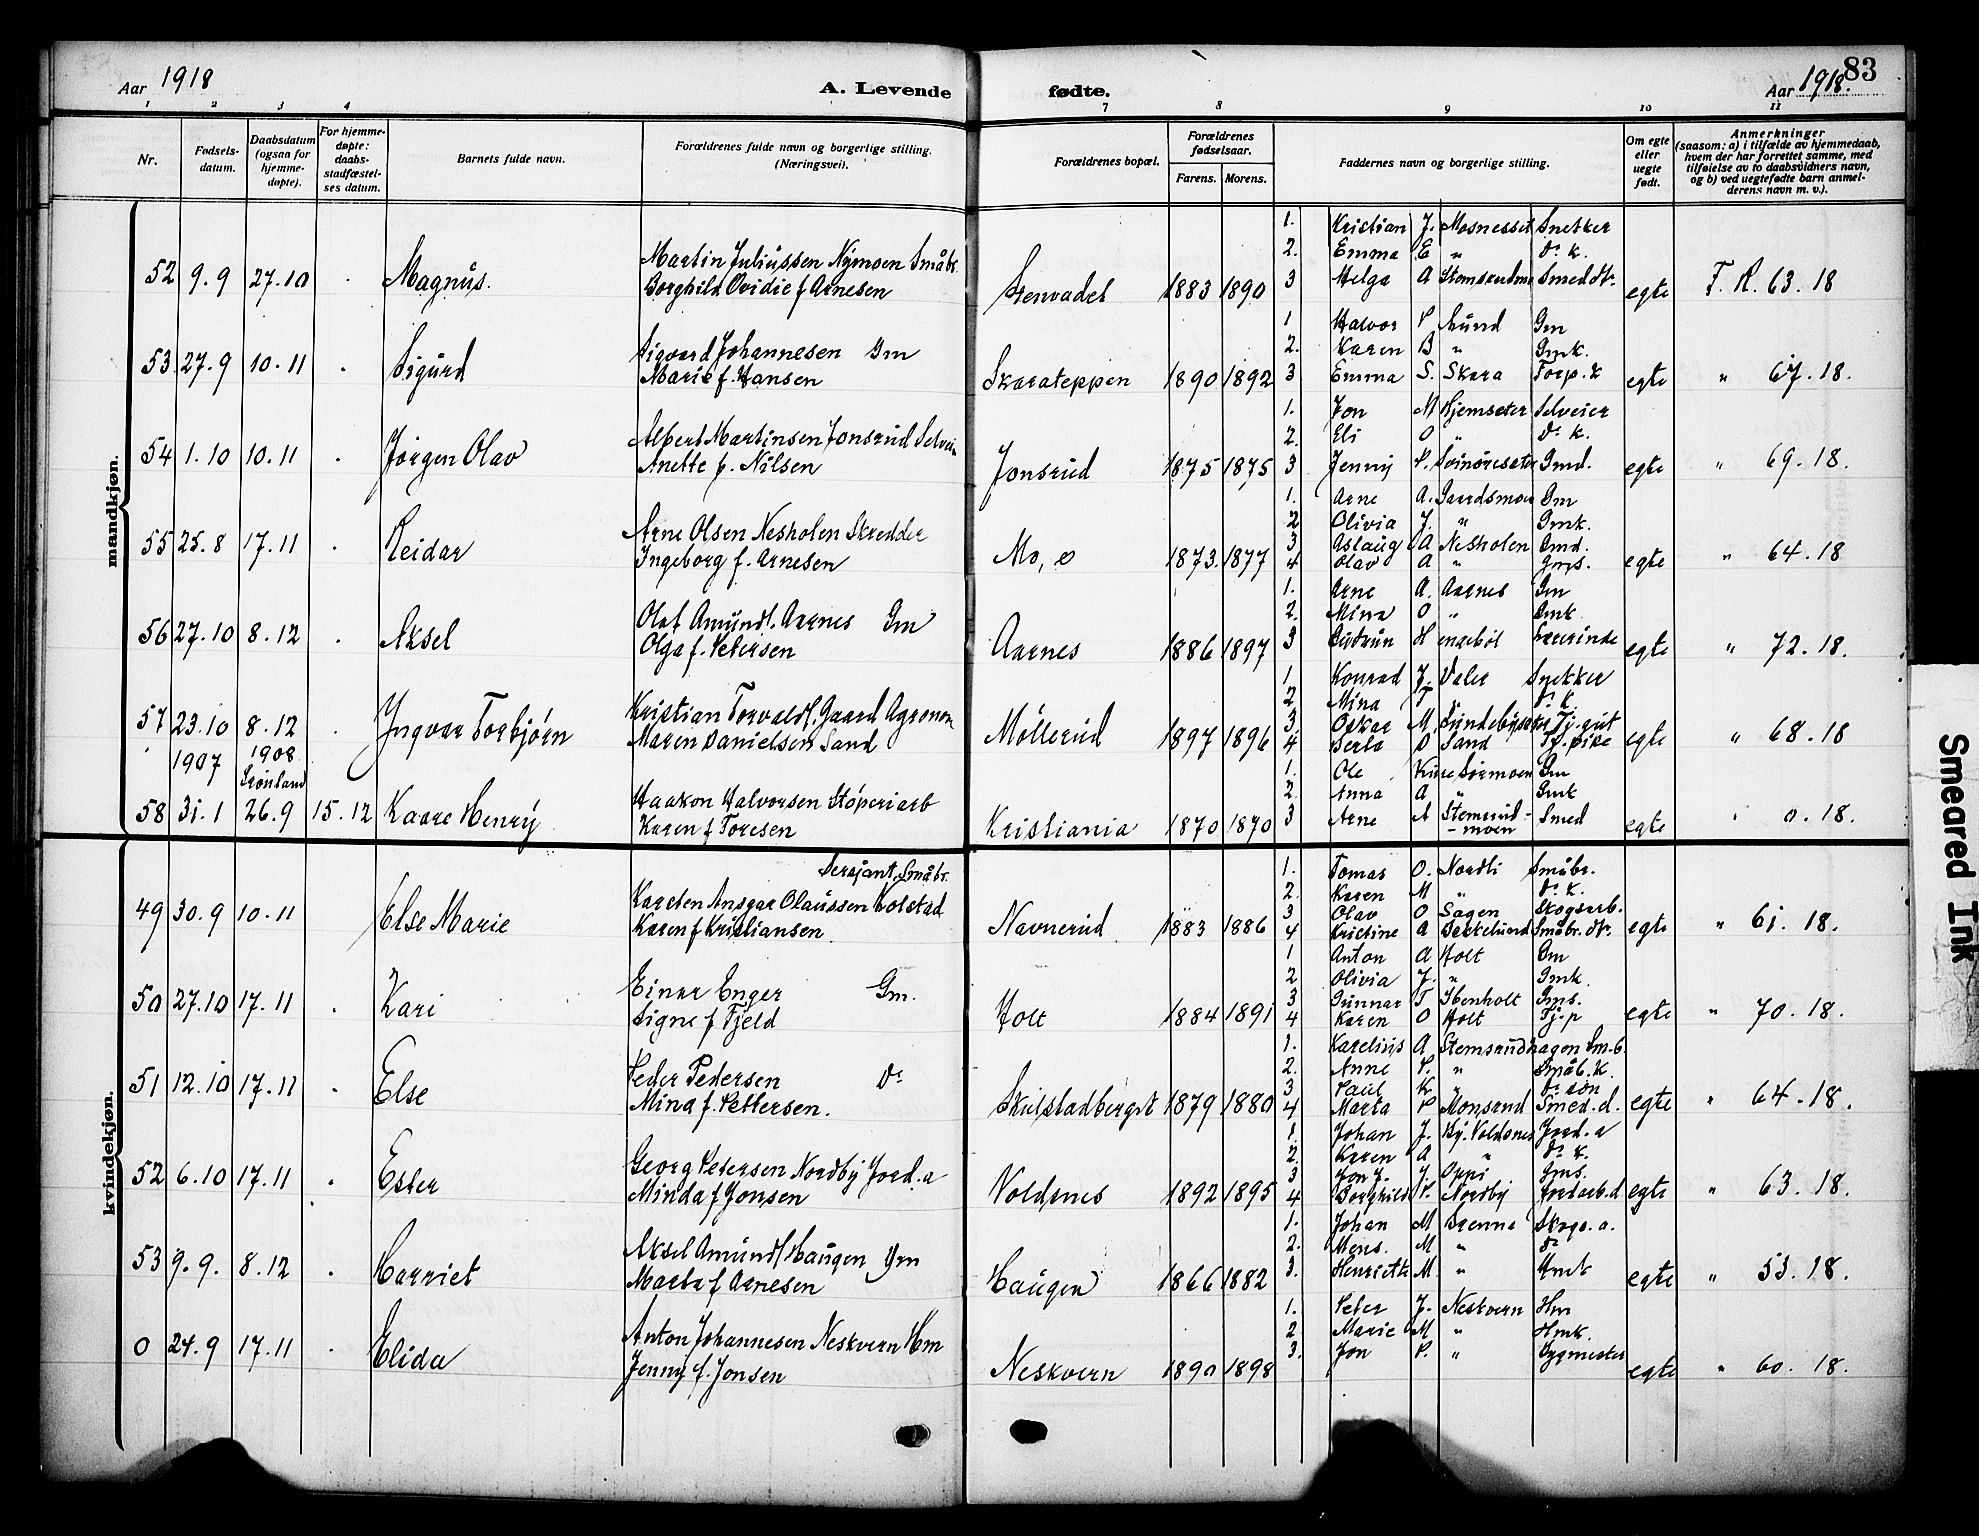 Aar 1918
A. Levende fødte.
Aar 1918.
83
1 2 3 4 7 8 9 10 11
Nr.
Fødsels-
datum.
Daabsdatum
(ogsaa for
hjemme-
døpte).
For hjemme-
døpte:
daabs-
stadfæstel-
ses datum.
Barnets fulde navn.
Forældrenes fulde navn og borgerlige stilling.
(Næringsvei).
Forældrenes bopæl.
Forældrenes
fødselsaar.
Farens. Morens.
Faddernes navn og borgerlige stilling.
Om egte
eller
uegte
født.
Anmerkninger
(saasom: a) i tilfælde av hjemmedaab,
hvem der har forrettet samme, med
tilføielse av to daabsvidners navn,
og b) ved uegtefødte barn anmel-
derens navn m. v.).
mandkjøn.
52 9.9 27.10 Magnus.
Martin Juliussen Nymoen Småbr.
Borghild Ovidie f Arnesen
Stenvadet 1883 1890
1. Kristian J. Mosnesset Snekker
2. Emma E " Do k.
3 Helga A Stemsrudmo Smeddtr.
egte F. R. 63. 18
53 27.9 10.11 Sigurd
Sigvard Johannesen Gm
Marie f. Hansen
Skarateppen 1890 1892
1 Halvor P Aund Gm
2. Karen B " Gmk.
3 Emma S. Skara Torp. k
egte " 67. 18.
54 1.10 10.11 Jørgen Olav
Albert Martinsen Jonsrud Selvei
Anette f. Nilsen
Jonsrud 1875 1875
1. Jon M Hjemseter Selveier
2. Eli O " Do k.
3 Jenny P. Svinøreseter Gmd.
egte " 69. 18.
55 25.8 17.11 Reidar
Arne Olsen Nesholen Skredder
Ingeborg f. Arnesen
Mo, ø 1873. 1877
1. Arne A. Gaardsmoen Gm
2 Olivia J. " Gmk.
3 Aslaug A Nesholen Gmd.
4 Olav A " Gms.
egte " 64. 18
56 27.10 8.12 Aksel
Olaf Amundf. Aarnes Gm
Olga f. Petersen
Aarnes 1886 1897
1. Arne A. Aarnes Gm
2. Mina O " Gmk.
3 Gudrun H engebøl Lærerinde
egte " 72. 18.
57 23.10 8.12 Ingvar Torbjørn
Kristian Torvaldf. Gaard Agronom
Maren Danielsen Sand
Møllerud 1897 1896
1. Konrad J. Valer Snekker
2 Mina T " Do k.
3 Oskar M. Sundebyseter Tj. gut
4 Berta O Sand Tj. pike
egte " 68. 18
1907 1908
Grønland
58 31.1 26.9 15.12 Kaare Henry
Haakon Halvorsen Støperiarb
Karen f Toresen
Kristiania 1870 1870
1. Ole K Sørmoen Gm
2. Anna A " Gmk
3 Arne A Stemsrud-
-moen Smed
egte " 0. 18.
kvindekjøn.
Sersjant, Småbr.
49 30.9 10.11 Else Marie
Karsten Ansgar Olaussen Kolstad
Karen f Kristiansen
Navnerud 1883 1886
1. Tomas O. Nordli Småbr.
2. Karen M " Do k.
3 Olav O Sagen Skogsarb.
4 Kristine A Bekkelund Småbr. dtr.
egte " 61. 18.
50 27.10 17.11 Kari
Einar Enger Gm.
Signe f Fjeld
Holt 1884 1891
1 Anton A Holt Gm
2 Olivia J. " Gmk.
3 Gunnar T Ibenholt Gms.
4 Karen O Holt Tj. p
egte " 70. 18.
51 12.10 17.11 Else
Peder Pedersen Do
Mina f. Pettersen.
Skulstadberget 1879 1880
1. Karelius A Stemsrudhagen Sm.b.
2. Anne P. " Småb. K.
3 Paul K " Do søn
4 Marta P Monsrud Smed. d.
egte " 64. 18.
52 6.10 17.11 Ester
Georg Petersen Nordby Jord. a
Minda f Jonsen
Voldsnes 1892 1895
1. Johan J. By. Voldsnes Jord. a
2. Karen A " Do k.
3 Jon J. J. Oppi Gms.
4 Borghild P. Nordby Jordarb. d
egte " 63. 18.
53 9.9. 8.12 Harriet
Aksel Amundf Haugen Gm
Marta f Arnesen
Haugen 1866 1882
1. Johan M Brenna Skogs. a.
2. Mens. M " Do
3. Henriette M. "
egte " 53. 18.
0 24.9 17.11 Elida
Anton Johannesen Neskvern Hm
Jenny f. Jonsen
Neskvern 1890 1898
1. Peter J. Neskvern Hm
2. Marie M " Hmk.
3. Jon P. " Bygmester
egte " 60. 18.
Smeared Ink